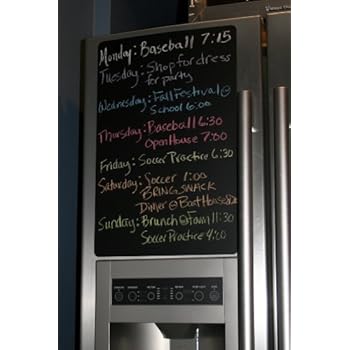 Monday: Baseball 7:15
Tuesday: Shop for dress
for party
Wednesday: Fall Festival @
School 6:00
Thursday: Baseball 6:30
Open House 7:00
Friday: Soccer Practice 6:30
Saturday: Soccer 1:00
BRING SNACK
Dinner @ Boat House
Sunday: Brunch @ Farm 11:30
Soccer Practice 4:00